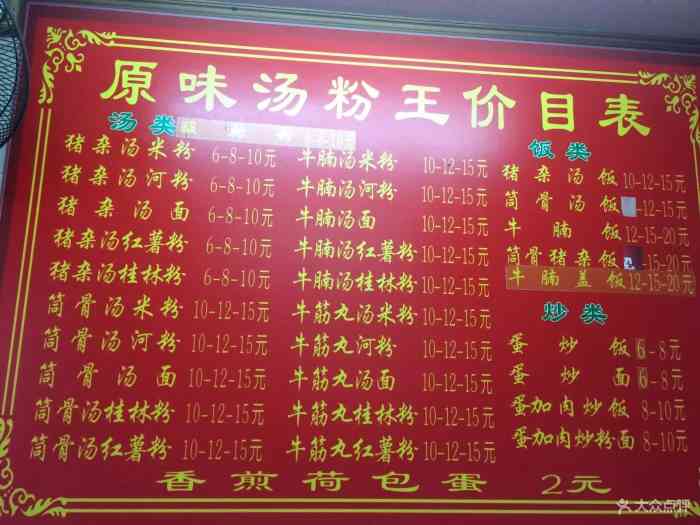 原味汤粉王价目表
汤类
猪杂汤米粉 6-8-10元
猪杂汤河粉 6-8-10元
猪杂汤面 6-8-10元
猪杂汤红薯粉 6-8-10元
猪杂汤桂林粉 6-8-10元
筒骨汤米粉 10-12-15元
筒骨汤河粉 10-12-15元
筒骨汤面 10-12-15元
筒骨汤桂林粉 10-12-15元
筒骨汤红薯粉 10-12-15元
牛腩汤米粉 10-12-15元
牛腩汤河粉 10-12-15元
牛腩汤面 10-12-15元
牛腩汤红薯粉 10-12-15元
牛腩汤桂林粉 10-12-15元
牛筋丸汤米粉 10-12-15元
牛筋丸河粉 10-12-15元
牛筋丸汤面 10-12-15元
牛筋丸桂林粉 10-12-15元
牛筋丸红薯粉 10-12-15元
饭类
猪杂汤饭 10-12-15元
筒骨汤饭 -12-15元
牛腩饭 12-15-20元
筒骨猪杂饭 -15-20元
牛腩盖饭 12-15-20元
炒类
蛋炒饭 6-8元
蛋炒面 6-8元
蛋加肉炒饭 8-10元
蛋加肉炒粉面 8-10元
香煎荷包蛋 2元
大众点评